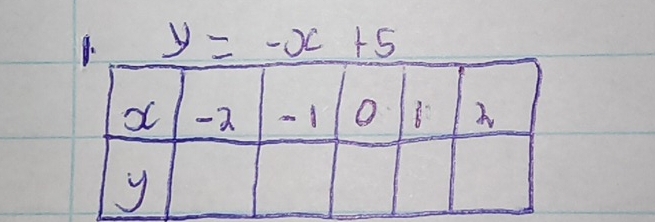 1. y = -x +5
x -2 -1 0 1 2
y